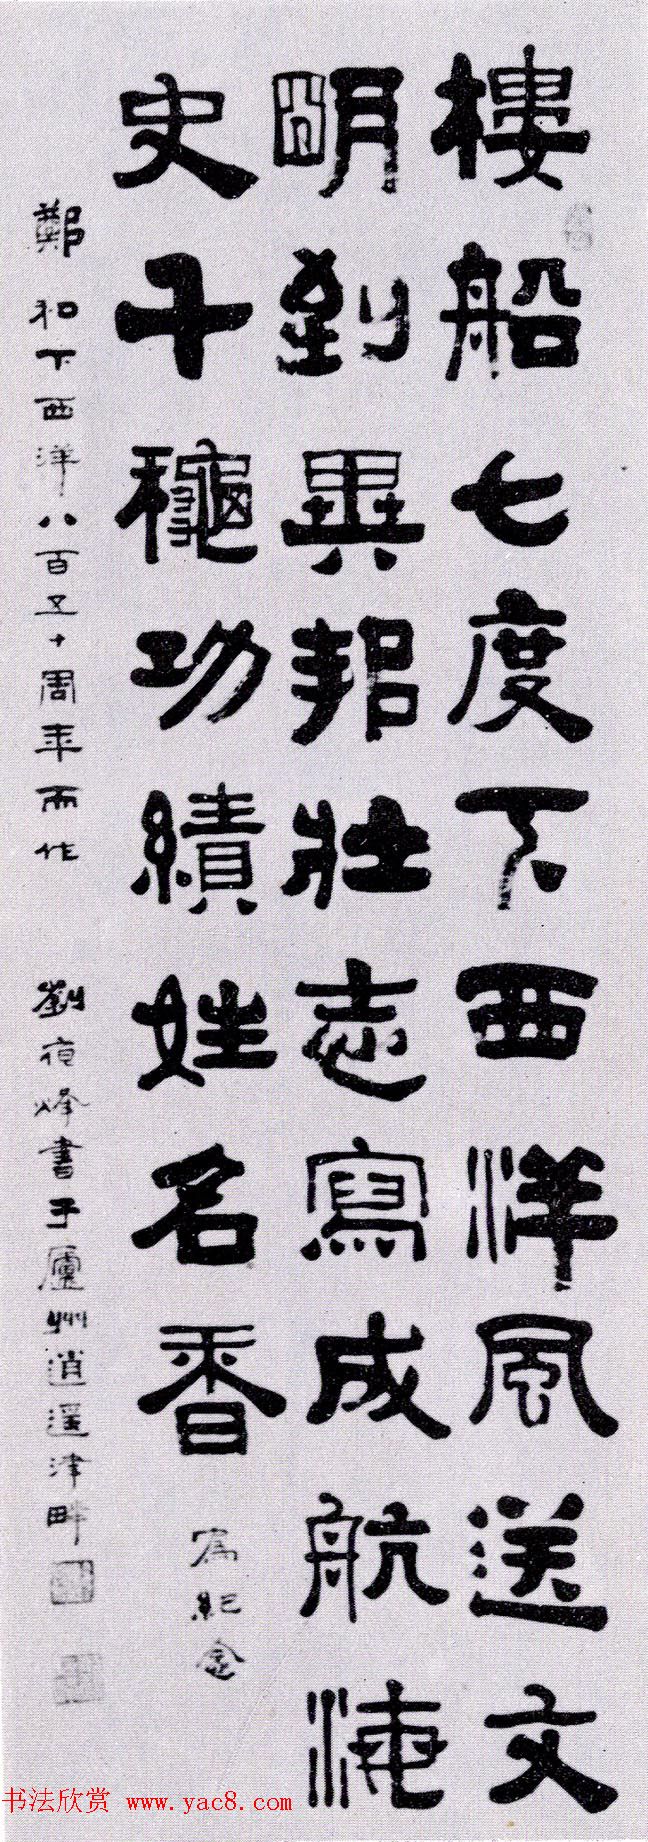 樓船七度下西洋風送文
明到異邦壯志寫成航海
史千穐功績姓名香
為紀念
鄭和下西洋八百五十周年而作
劉夜烽書于廬州逍遥津畔
书法欣赏 www.yac8.com